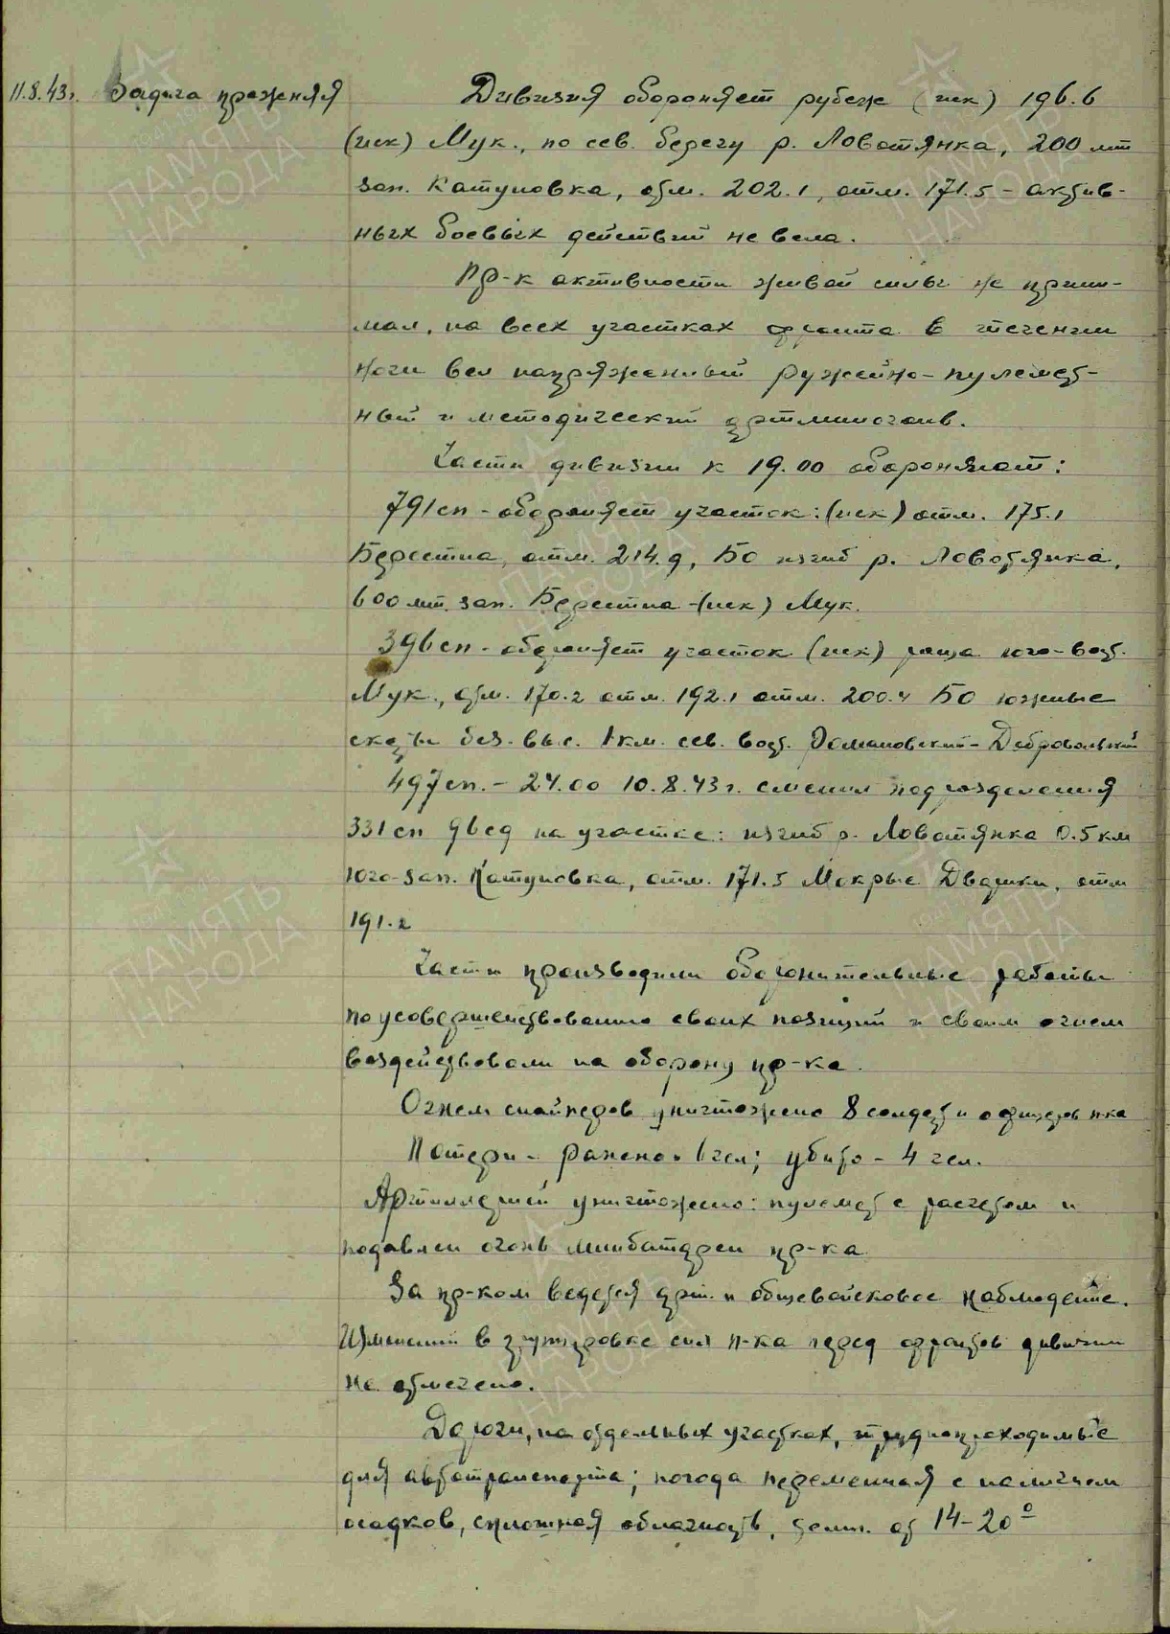 11.8.43г. Задача прежняя Дивизия обороняет рубеж (иск) 196.6
(иск) Мук., по сев. берегу р. Ловатянка, 200 мт
зап. Катуновка, отм. 202.1, отм. 171.5 - актив-
ных боевых действий не вела.
Пр-к активности живой силы не прини-
мал, на всех участках фронта в течении
ночи вел напряженный ружейно-пулемет-
ный и методический артминогонь.
Части дивизии к 19.00 обороняют:
791сп - обороняет участок: (иск) отм. 175.1
Берестна, отм. 214.9, БО изгиб р. Ловотянка,
600 мт. зап. Берестна - (иск) Мук.
396сп - обороняет участок (иск) роща юго-вост.
Мук., отм. 170.2 отм. 192.1 отм. 200.4 БО южные
скаты без. выс. 1км. сев. вост. - Добровольский
497сп. - 24.00 10.8.43г. сменил подразделения
331сп 96сд на участке: изгиб р. Ловатянка 0.5км
юго-зап. Катуновка, отм. 171.5 Мокрые Дворики, отм
191.2
Части производили оборонительные работы
по усовершенствованию своих позиций и своим огнем
воздействовали на оборону пр-ка.
Огнем снайперов уничтожено 8 солдат и офицеров п-ка
Потери - ранено - 6чел; убито - 4 чел.
Артиллерией уничтожено: пулемет с расчетом и
подавлен огонь минбатареи пр-ка
За пр-ком ведется арт. и общевойсковое наблюдение.
Изменений в группировке сил п-ка перед фронтов дивизии
не отмечено.
Дороги, на отдельных участках, труднопроходимые
для автотранспорта; погода переменная с наличием
осадков, сплошная облачность, темп. от 14-20°